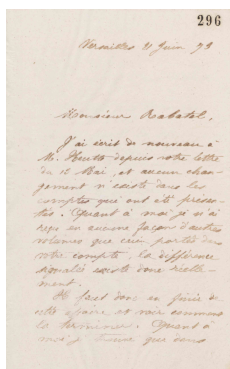 296
Versailles 21 Juin 93
Monsieur Rabatel,
J'ai écrit de nouveau à
M. depuis votre lettre
du 12 Mai, et aucun chan-
gement n'existe dans les
comptes qui ont été présen-
tés. Quant à moi je n'ai
reçu en aucune façon d'autres
volumes que ceux portés dans
votre compte, la différence
signalée existe donc réelle-
ment.
Il faut donc en finir de
cette affaire et voir comment
la terminer. Quant à
moi je trouve que vous